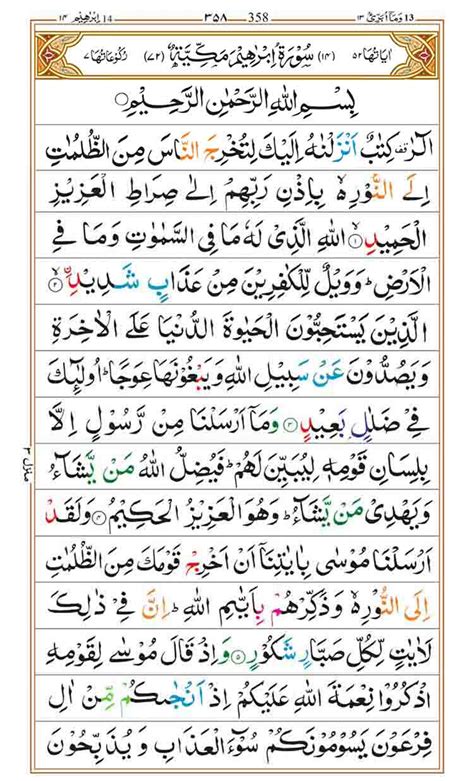 ١٤ ابرٰهیم 14 ٣٥٨ 358 وما ابرئ ١٣ 13
اٰیاتها ٥٢ (١٤) سُوْرَةُ اِبْرٰهِیْمَ مَكِّیَّةٌ (٧٢) رکوعاتها ٧
بِسْمِ اللّٰهِ الرَّحْمٰنِ الرَّحِیْمِ
الٓرٰ ࣞ كِتٰبٌ اَنْزَلْنٰهُ اِلَیْكَ لِتُخْرِجَ النَّاسَ مِنَ الظُّلُمٰتِ
اِلَى النُّوْرِ ࣢ۙ بِاِذْنِ رَبِّهِمْ اِلٰى صِرَاطِ الْعَزِیْزِ
الْحَمِیْدِ ۙ۝١ اللّٰهِ الَّذِیْ لَهٗ مَا فِی السَّمٰوٰتِ وَمَا فِی
الْاَرْضِ ؕ وَوَیْلٌ لِّلْكٰفِرِیْنَ مِنْ عَذَابٍ شَدِیْدِ ۙ۝٢
الَّذِیْنَ یَسْتَحِبُّوْنَ الْحَیٰوةَ الدُّنْیَا عَلَى الْاٰخِرَةِ
وَیَصُدُّوْنَ عَنْ سَبِیْلِ اللّٰهِ وَیَبْغُوْنَهَا عِوَجًا ؕ اُولٰٓىِٕكَ
فِیْ ضَلٰلٍۭ بَعِیْدٍ ۝٣ وَمَاۤ اَرْسَلْنَا مِنْ رَّسُوْلٍ اِلَّا
بِلِسَانِ قَوْمِهٖ لِیُبَیِّنَ لَهُمْ ؕ فَیُضِلُّ اللّٰهُ مَنْ یَّشَآءُ
وَیَهْدِیْ مَنْ یَّشَآءُ ؕ وَهُوَ الْعَزِیْزُ الْحَكِیْمُ ۝٤ وَلَقَدْ
اَرْسَلْنَا مُوْسٰى بِاٰیٰتِنَاۤ اَنْ اَخْرِجْ قَوْمَكَ مِنَ الظُّلُمٰتِ
اِلَى النُّوْرِ ࣢ۙ وَذَكِّرْهُمْ بِاَیّٰىمِ اللّٰهِ ؕ اِنَّ فِیْ ذٰلِكَ
لَاٰیٰتٍ لِّكُلِّ صَبَّارٍ شَكُوْرٍ ۝٥ وَاِذْ قَالَ مُوْسٰى لِقَوْمِهِ
اذْكُرُوْا نِعْمَةَ اللّٰهِ عَلَیْكُمْ اِذْ اَنْجٰىكُمْ مِّنْ اٰلِ
فِرْعَوْنَ یَسُوْمُوْنَكُمْ سُوْٓءَ الْعَذَابِ وَیُذَبِّحُوْنَ
منزل ٣